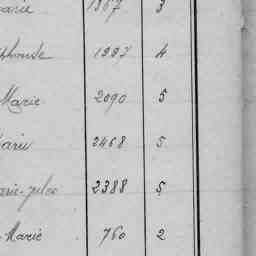 arie 1367 3
phonse 1997 4
Marie 2090 5
Marie 2468 5
arie 2388 5
Marie 760 2